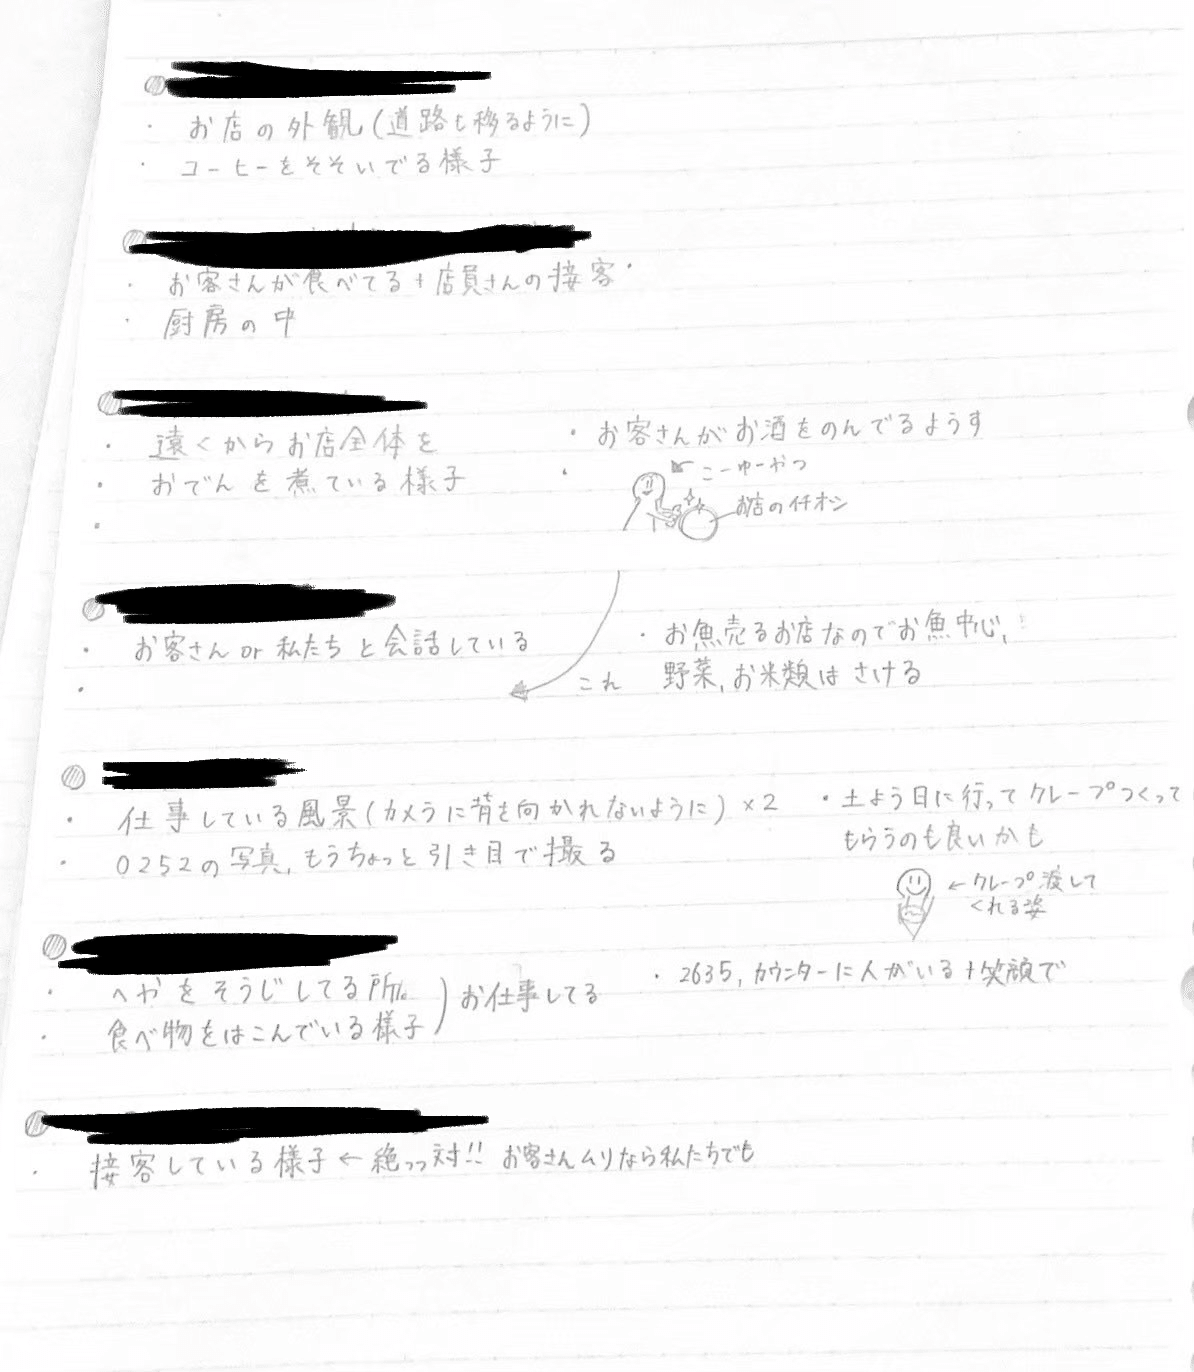 ・お店の外観(道路も移るように)
・コーヒーをそそいでる様子
・お客さんが食べてる+店員さんの接客・
・厨房の中
・遠くからお店全体を
・おでんを煮ている様子
・
・お客さんがお酒をのんでるようす
・
こーゆーやつ
お店のイチオシ
・お客さんor私たちと会話している
・
これ
・お魚売るお店なのでお魚中心、
野菜、お米類はさける
・仕事している風景(カメラに背を向かれないように)×2
・0252の写真、もうちょっと引き目で撮る
・土よう日に行ってクレープつくって
もらうのも良いかも
←クレープ渡して
くれる姿
・へやをそうじしてる所。
・食べ物をはこんでいる様子
お仕事してる
・2635、カウンターに人がいる+笑顔で
・接客している様子←絶っっ対!! お客さんムリなら私たちでも